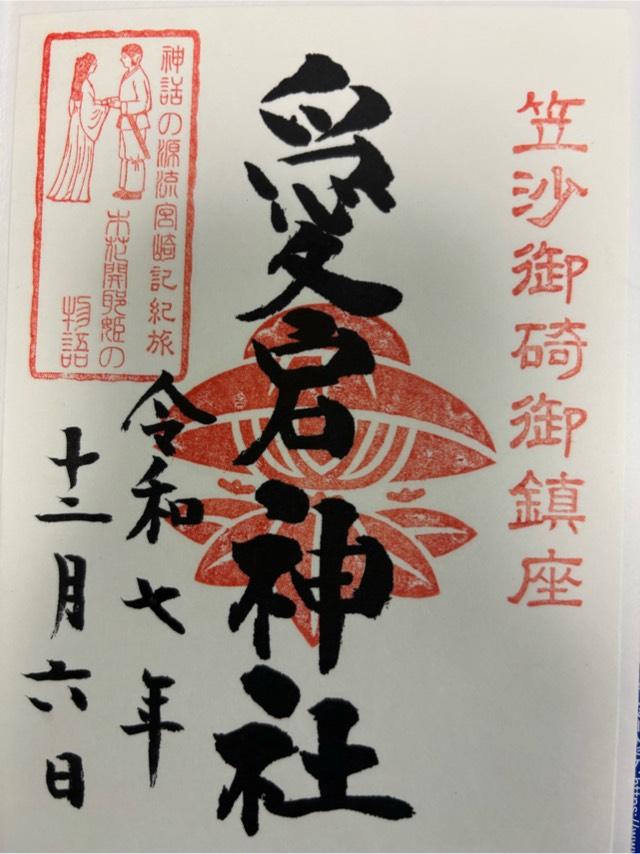 笠沙御碕御鎮座
愛宕神社
神話の源流宮崎記紀旅
木花開耶姫の
物語
令和七年
十二月六日